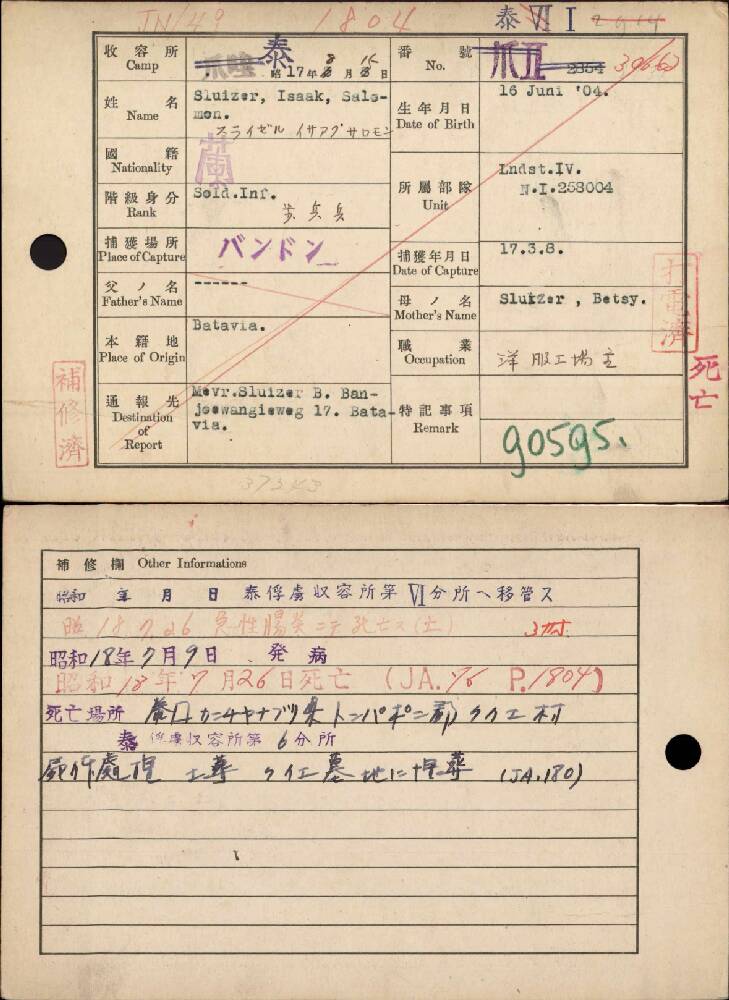 JN/49 1804 泰 VI I 2914
收容所 Camp 爪哇 泰 昭17年8月15日
番號 No. 爪II 2354
姓名 Name Sluizer, Isaak, Salo-
mon.
スライゼル イサアグ サロモン
生年月日 Date of Birth 16 Juni '04.
國籍 Nationality 蘭
階級身分 Rank Sold.Inf.
歩兵兵
所屬部隊 Unit Lndst.IV.
N.I.258004
捕獲場所 Place of Capture バンドン
捕獲年月日 Date of Capture 17.3.8.
父ノ名 Father's Name ------
母ノ名 Mother's Name Sluizer , Betsy.
本籍地 Place of Origin Batavia.
職業 Occupation 洋服工場主
通報先 Destination of Report Mevr.Sluizer B. Ban-
joewangieweg 17. Bata-
via.
特記事項 Remark 90595.
補修濟
打電濟
死亡
37343
補修欄 Other Informations
昭和 年 月 日 泰俘虜収容所第VI分所ヘ移管ス
昭18.7.26 急性腸炎ニテ死亡ス(土)
昭和18年7月9日 発病
昭和18年7月26日死亡 (JA.76 P.1804)
死亡場所 カンチヤナブリ県トンパポン郡クワエ村
泰俘虜収容所第6分所
屍体處理 土葬 クイエ墓地に埋葬 (JA.180)